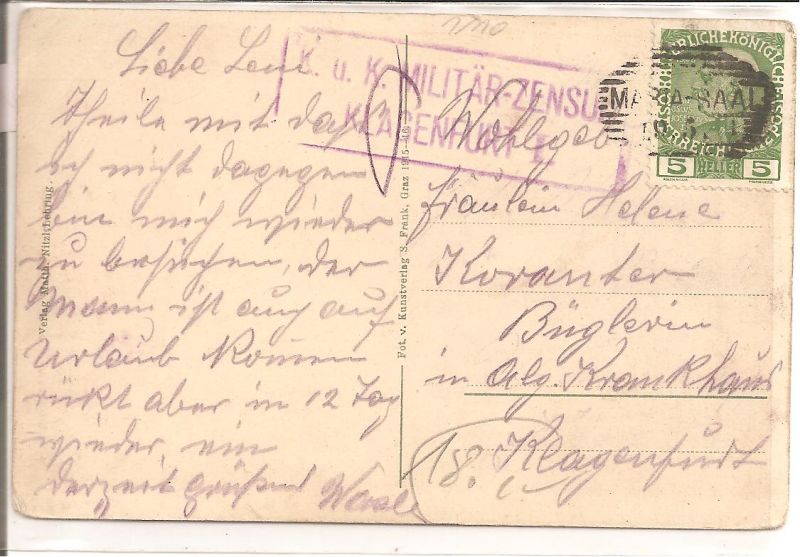 Liebe Leni
theile mit daß
ich nicht dagegen
bin mich wieder
zu besuchen, der
Mann ist auch auf
Urlaub komen
rückt aber in 12 Tag
wieder, ein
derzeit grüßend
K. u. K. MILITÄR-ZENSUR
KLAGENFURT
MARIA-SAAL
5 HELLER 5
Wohlgeb
Fräulein Helene
Koranter
Büglerin
in Alg. Krankhaus
Klagenfurt
18.
Verlag Math. Nitzl, Lebring.
Fot. v. Kunstverlag S. Frank, Graz 1915-16